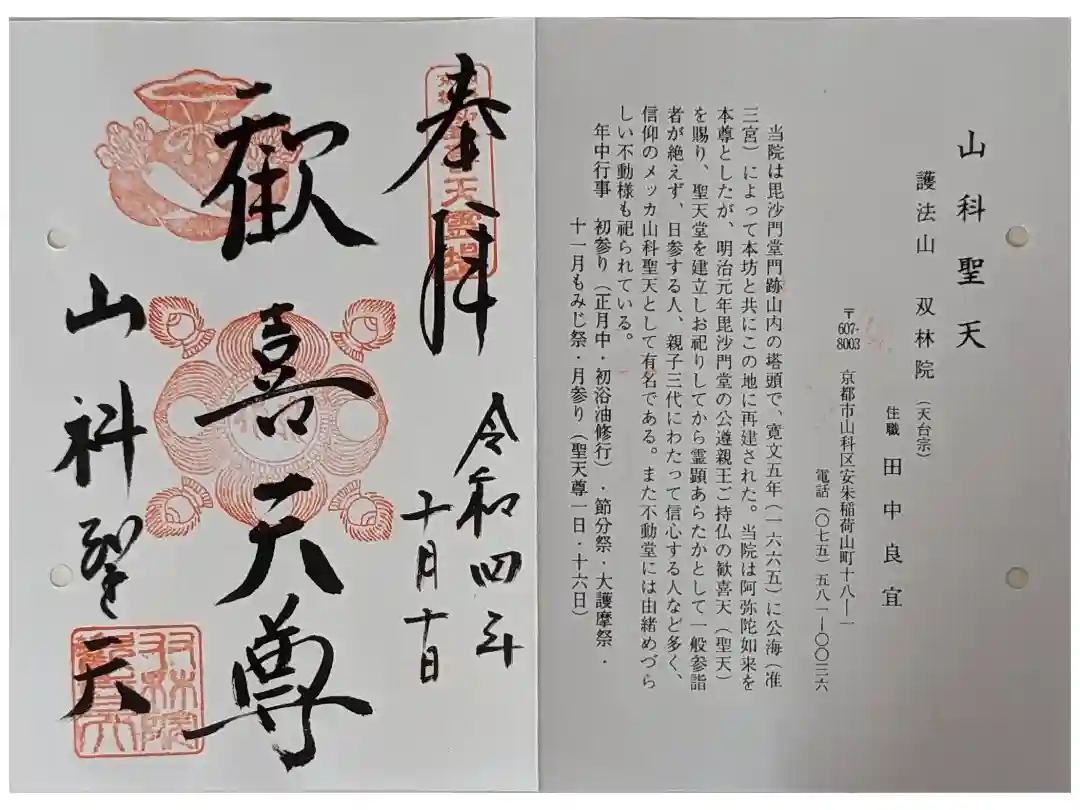 山科聖天
護法山 双林院(天台宗)
住職 田中良宜
〒607-8003 京都市山科区安朱稲荷山町十八―一
電話(〇七五)五八一―〇〇三六
当院は毘沙門堂門跡山内の塔頭で、寛文五年(一六六五)に公海(准
三宮)によって本坊と共にこの地に再建された。当院は阿弥陀如来を
本尊としたが、明治元年毘沙門堂の公遵親王ご持仏の歓喜天(聖天)
を賜り、聖天堂を建立しお祀りしてから霊顕あらたかとして一般参詣
者が絶えず、日参する人、親子三代にわたって信心する人など多く、
信仰のメッカ山科聖天として有名である。また不動堂には由緒めづら
しい不動様も祀られている。
年中行事 初参り(正月中・初浴油修行)・節分祭・大護摩祭・
十一月もみじ祭・月参り(聖天尊一日・十六日)
奉拝
聖天霊場
令和四年
十月十日
歓喜天尊
山科聖天
双林院